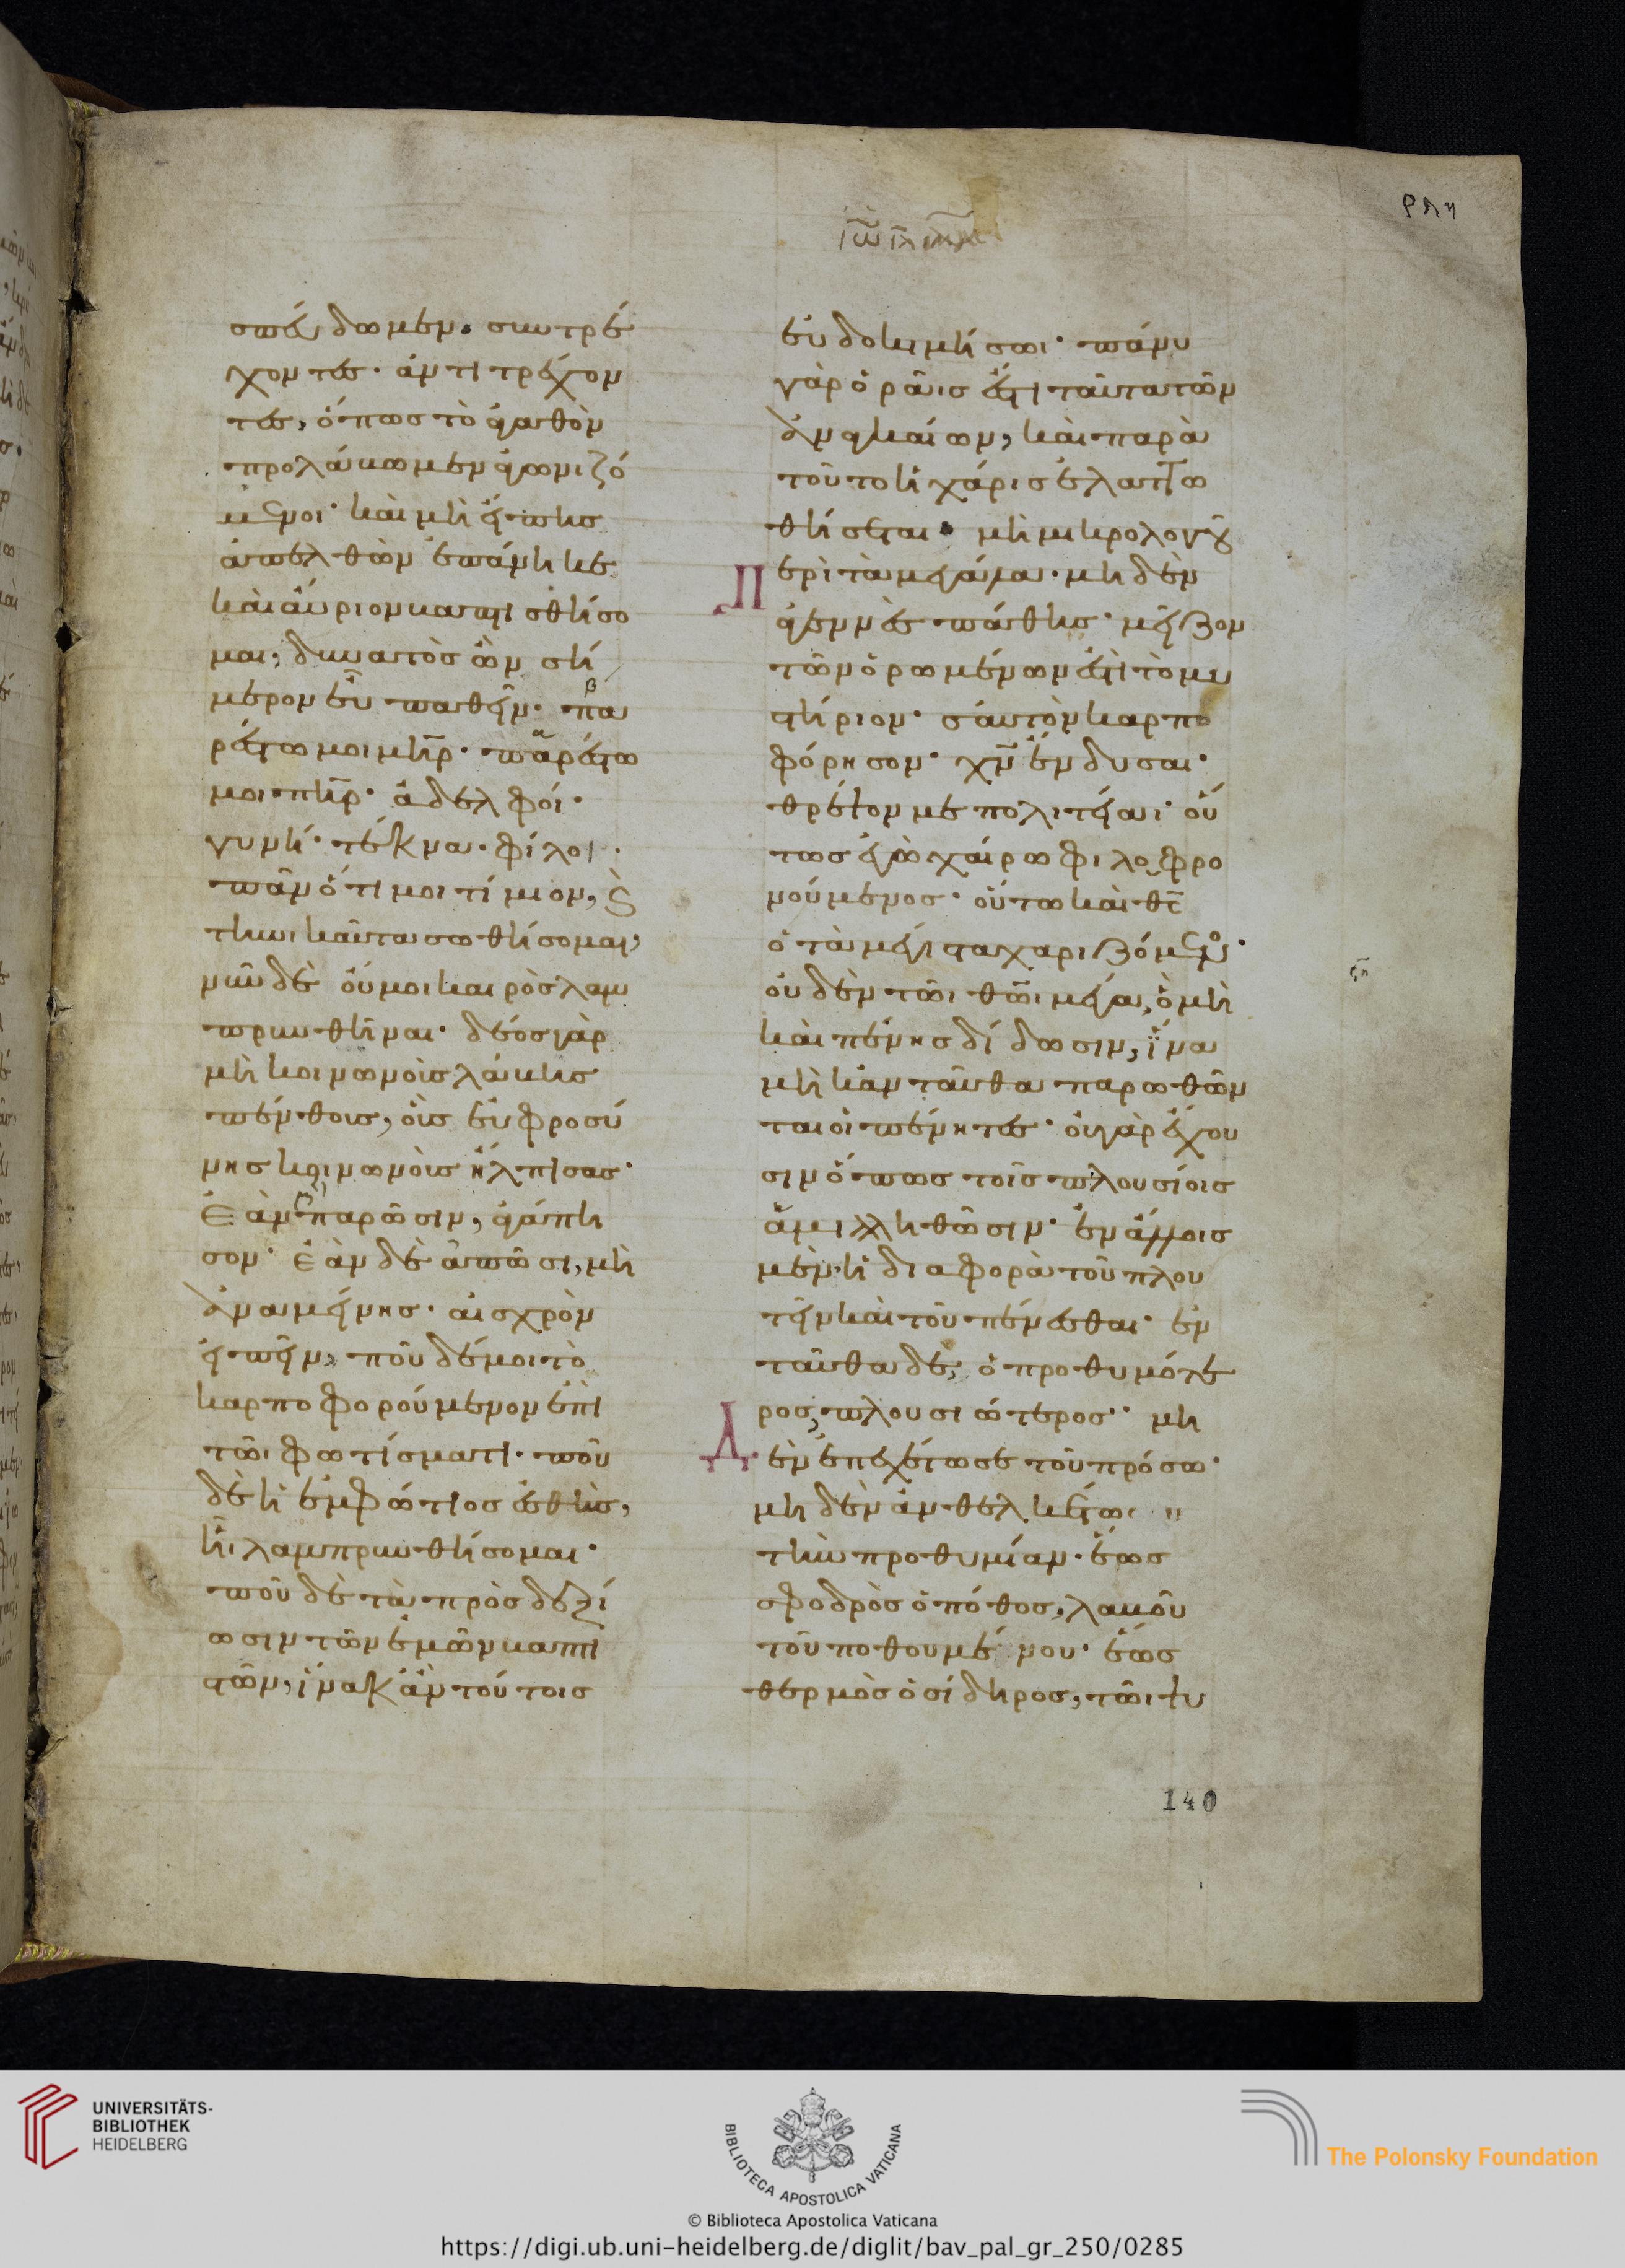 ρλη
σπεύδωμεν· συντρέ
χοντες· ἀντιτρέχον
τες, ὅπως τὸ ἀγαθὸν
προλάβωμεν ἀγωνιζό
μενοι· καὶ μὴ εἴπηις
ἀπελθὼν ἐπάνηκε
καὶ αὔριον βαπτισθήσο
μαι, δυνατὸς ὢν σή
μερον εὖ παθεῖν· πα
ρέστω μοι μηρ· παρέστω
μοι πηρ· ἀδελφοί·
γυνή· τέκνα· φίλοι·
πᾶν ὅτι μοι τίμιον, ϗ
τηνικαῦτα σωθήσομαι,
νῦν δὲ οὔ μοι καιρὸς λαμ
πρυνθῆναι· δέος γὰρ
μὴ κοινωνοὺς λάβηις
πένθους, οὓς εὐφροσύ
νης κοινωνοὺς ἤλπισας·
Ἐὰν παρῶσιν, ἀγάπη
σον· ἐὰν δὲ ἀπῶσι, μὴ
ἀναμείνης· αἰσχρὸν
εἰπεῖν, ποῦ δέ μοι τὸ
καρποφορούμενον ἐπὶ
τῶι φωτίσματι· ποῦ
δὲ ἡ ἐμφώτιος ἐσθὴς,
ἧι λαμπρυνθήσομαι·
ποῦ δὲ τὰ πρὸς δεξί
ωσιν τῶν ἐμῶν βαπτι
στῶν, ἵνα κἂν τούτοις
εὐδοκιμήσωι· πάνυ
γὰρ ὁρᾶις ὅτι ταῦτα τῶν
ἀναγκαίων, καὶ παρὰ
τοῦτο ἡ χάρις ἐλαττω
θήσεται· μὴ μικρολογοῦ
Περὶ τὰ μεγάλα· μηδὲν
ἀγεννὲς πάθηις· μεῖζον
τῶν ὁρωμένων ἐστὶ τὸ μυ
στήριον· σαυτὸν καρπο
φόρησον· χν ἔνδυσαι·
θρέψον με πολιτείαι· οὕ
τως ἐγὼ χαίρω φιλοφρο
νούμενος· οὕτω καὶ θς
ὁ τὰ μέγιστα χαριζόμενος·
οὐδὲν τῶι θῶι μέγα, ὃ μὴ
καὶ πένης δίδωσιν, ἵνα
μὴ κἀνταῦθα παρωθῶν
ται οἱ πένητες· οὐ γὰρ ἔχου
σιν ὅπως τοῖς πλουσίοις
ἁμιλληθῶσιν· ἐν ἄλλοις
μὲν ἡ διαφορὰ τοῦ πλου
τεῖν καὶ τοῦ πένεσθαι· ἐν
ταῦθα δὲ, ὁ προθυμότε
ρος, πλουσιώτερος· μη
Δὲν ἐπεχέτω σε τοῦ πρόσω·
μηδὲν ἀνθελκέτω
τὴν προθυμίαν· ἕως
σφοδρὸς ὁ πόθος, λαβοῦ
τοῦ ποθουμένου· ἕως
θερμὸς ὁ σίδηρος, τῶι ψυ
140
UNIVERSITÄTS-
BIBLIOTHEK
HEIDELBERG
BIBLIOTECA APOSTOLICA VATICANA
The Polonsky Foundation
© Biblioteca Apostolica Vaticana
https://digi.ub.uni-heidelberg.de/diglit/bav_pal_gr_250/0285